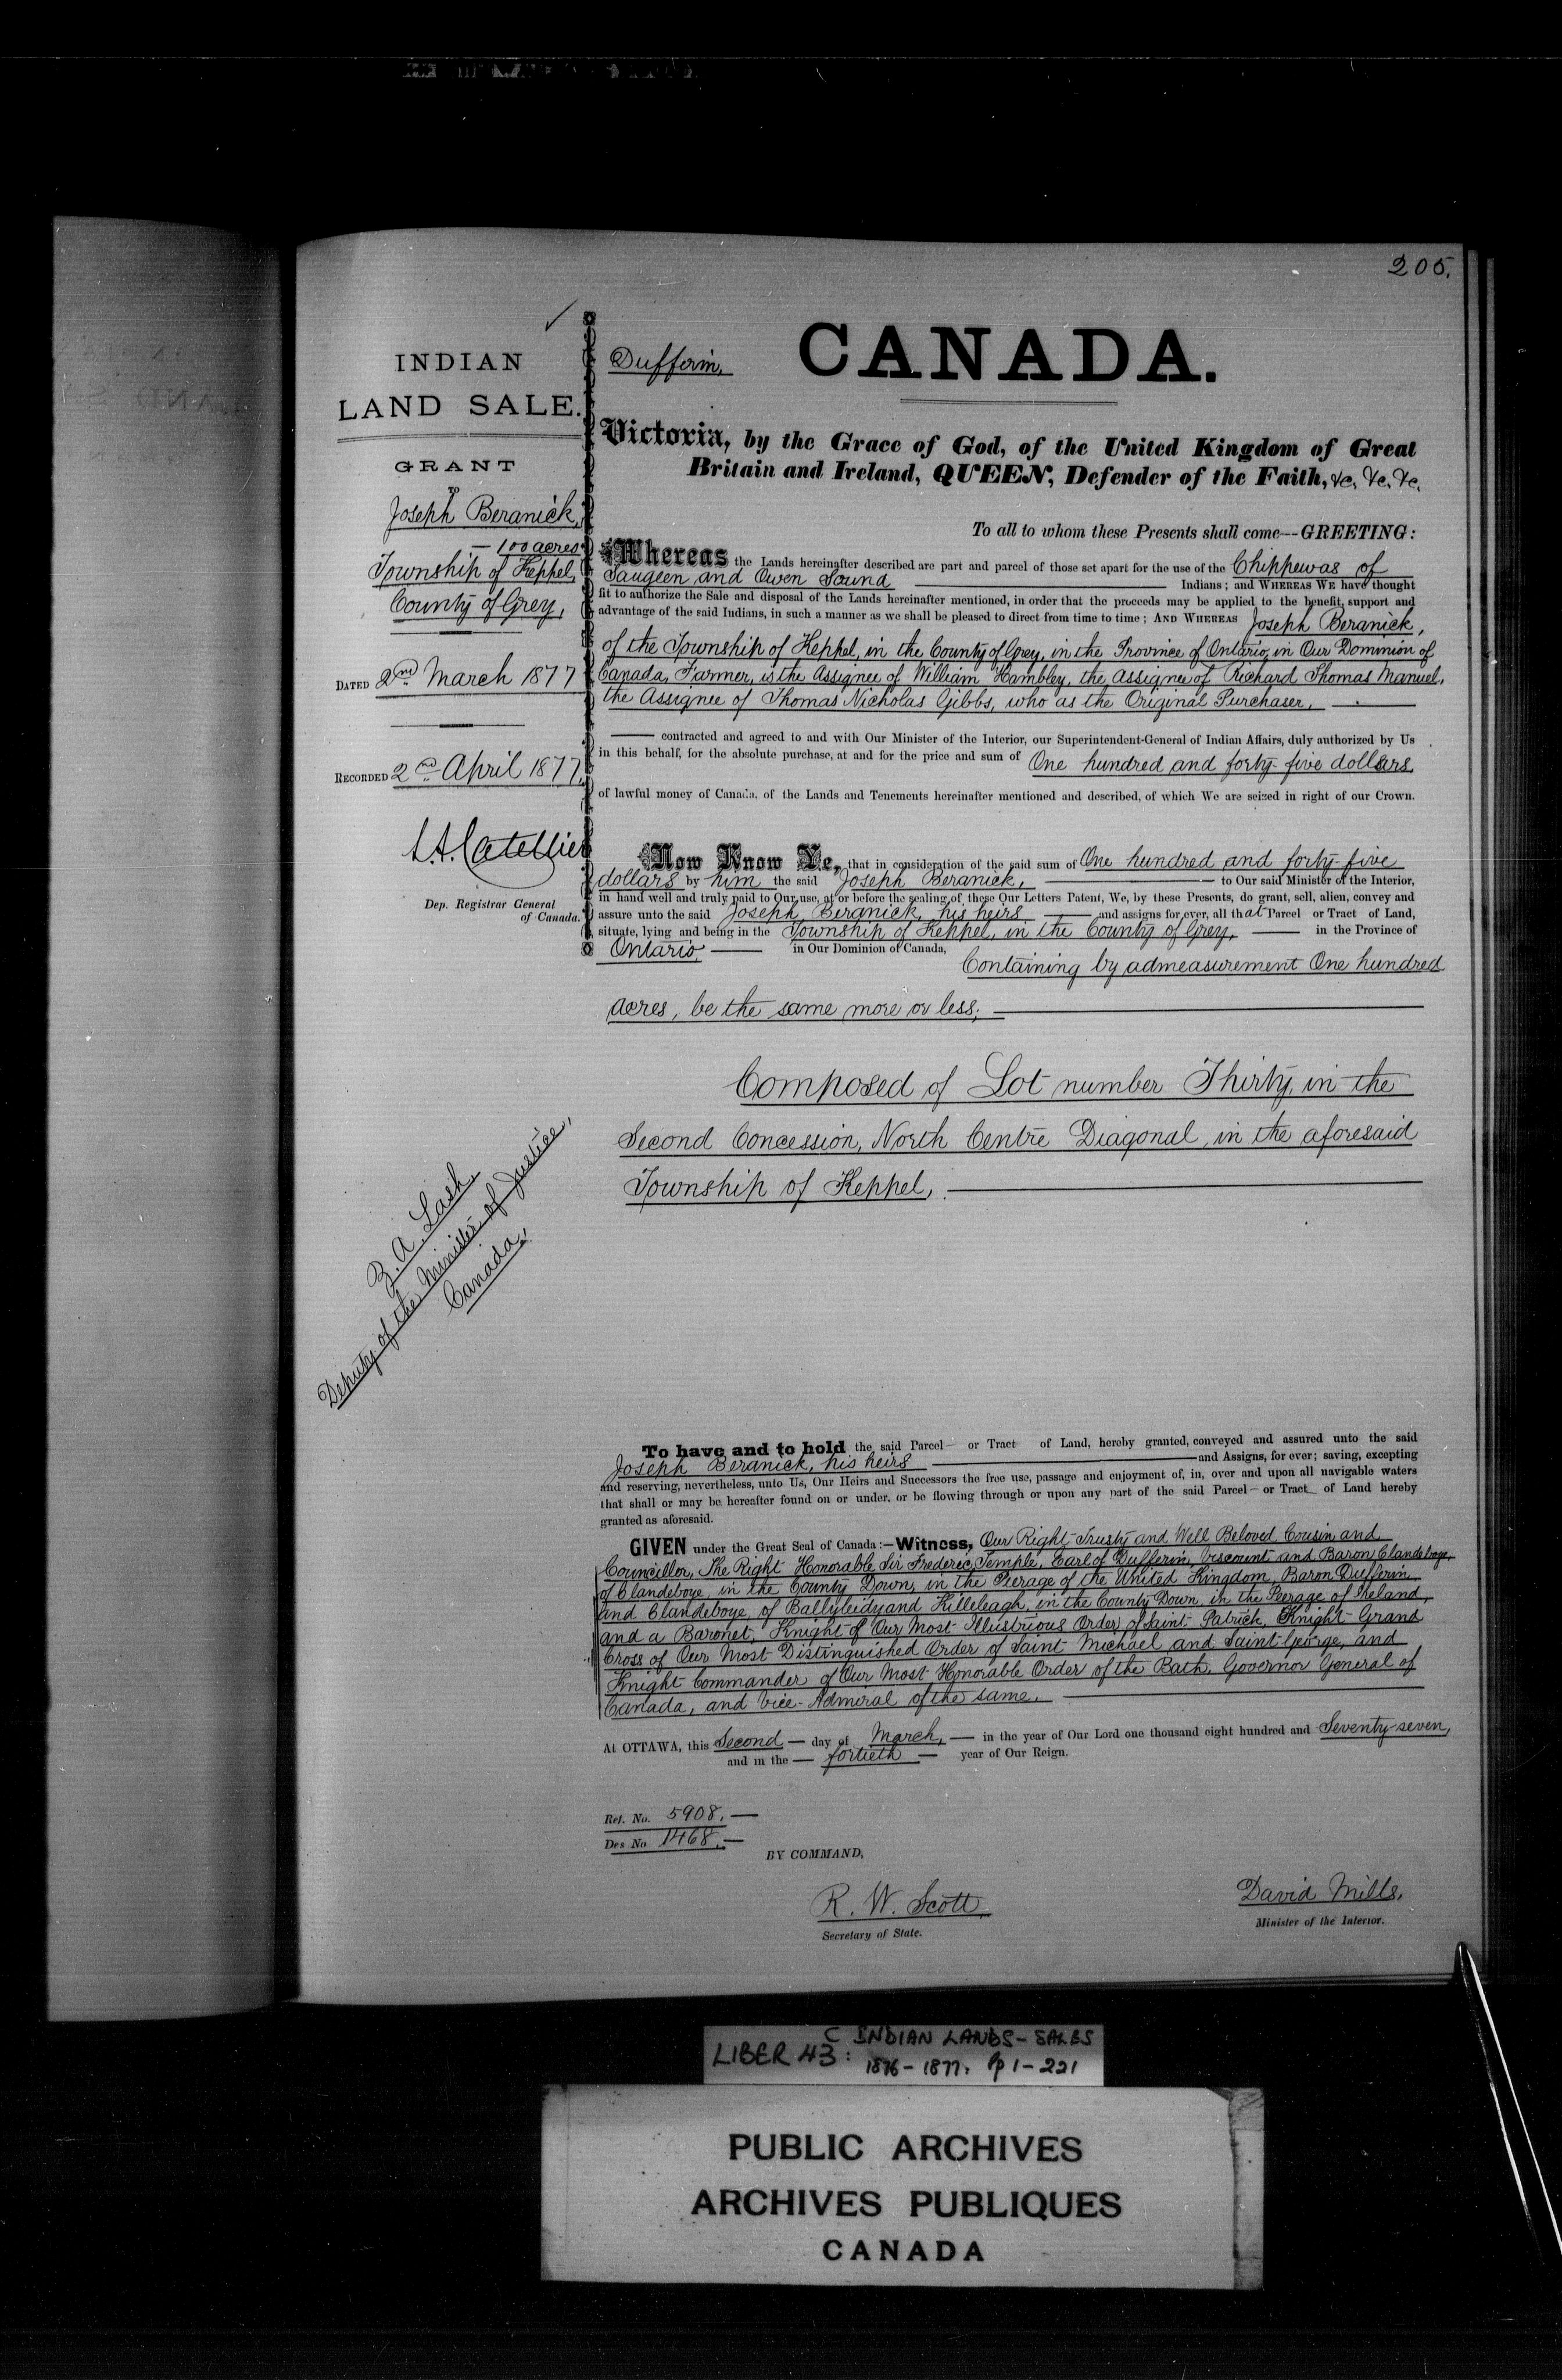 205.
INDIAN
LAND SALE.
GRANT
TO
Joseph Beranick,
— 100 acres
Township of Keppel,
County of Grey,
DATED 2nd March 1877
RECORDED 2nd April 1877,
L.A. Catellier
Dep. Registrar General
of Canada.
Z. A. Lash,
Deputy of the Minister of Justice,
Canada.
Dufferin,
CANADA.
Victoria, by the Grace of God, of the United Kingdom of Great
Britain and Ireland, QUEEN, Defender of the Faith, &c, &c, &c.
To all to whom these Presents shall come—GREETING:
Whereas the Lands hereinafter described are part and parcel of those set apart for the use of the Chippewas of
Saugeen and Owen Sound Indians; and WHEREAS WE have thought
fit to authorize the Sale and disposal of the Lands hereinafter mentioned, in order that the proceeds may be applied to the benefit, support and
advantage of the said Indians, in such a manner as we shall be pleased to direct from time to time; AND WHEREAS Joseph Beranick,
of the Township of Keppel, in the County of Grey, in the Province of Ontario, in Our Dominion of
Canada, Farmer, is the Assignee of William Hambley, the Assignee of Richard Thomas Manuel,
the Assignee of Thomas Nicholas Gibbs, who as the Original Purchaser, —
— contracted and agreed to and with Our Minister of the Interior, our Superintendent-General of Indian Affairs, duly authorized by Us
in this behalf, for the absolute purchase, at and for the price and sum of One hundred and forty-five dollars
of lawful money of Canada, of the Lands and Tenements hereinafter mentioned and described, of which We are seized in right of our Crown.
Now Know Ye, that in consideration of the said sum of One hundred and forty-five
dollars by him the said Joseph Beranick, — to Our said Minister of the Interior,
in hand well and truly paid to Our use, at or before the sealing of these Our Letters Patent, We, by these Presents, do grant, sell, alien, convey and
assure unto the said Joseph Beranick, his heirs — and assigns for ever, all that Parcel or Tract of Land,
situate, lying and being in the Township of Keppel, in the County of Grey, — in the Province of
Ontario — in Our Dominion of Canada,
Containing by admeasurement One hundred
acres, be the same more or less; —
Composed of Lot number Thirty, in the
Second Concession, North Centre Diagonal, in the aforesaid
Township of Keppel, —
To have and to hold the said Parcel — or Tract of Land, hereby granted, conveyed and assured unto the said
Joseph Beranick, his heirs — and Assigns, for ever; saving, excepting
and reserving, nevertheless, unto Us, Our Heirs and Successors the free use, passage and enjoyment of, in, over and upon all navigable waters
that shall or may be hereafter found on or under, or be flowing through or upon any part of the said Parcel — or Tract — of Land hereby
granted as aforesaid.
GIVEN under the Great Seal of Canada:—Witness, Our Right Trusty and Well Beloved Cousin and
Councillor, The Right Honorable Sir Frederic Temple, Earl of Dufferin, Viscount and Baron Clandeboye,
of Clandeboye, in the County Down, in the Peerage of the United Kingdom, Baron Dufferin
and Clandeboye, of Ballyleidy and Killeleagh, in the County Down, in the Peerage of Ireland,
and a Baronet, Knight of Our Most Illustrious Order of Saint Patrick, Knight Grand
Cross of Our Most Distinguished Order of Saint Michael and Saint George, and
Knight Commander of Our Most Honorable Order of the Bath. Governor General of
Canada, and Vice-Admiral of the same. —
At OTTAWA, this Second — day of March, — in the year of Our Lord one thousand eight hundred and Seventy-seven,
and in the — fortieth — year of Our Reign.
Ref. No. 5908. —
Des No 1468. —
BY COMMAND,
R. W. Scott,
Secretary of State.
David Mills,
Minister of the Interior.
LIBER 43: C INDIAN LANDS-SALES
1876-1877. pp 1-221
PUBLIC ARCHIVES
ARCHIVES PUBLIQUES
CANADA